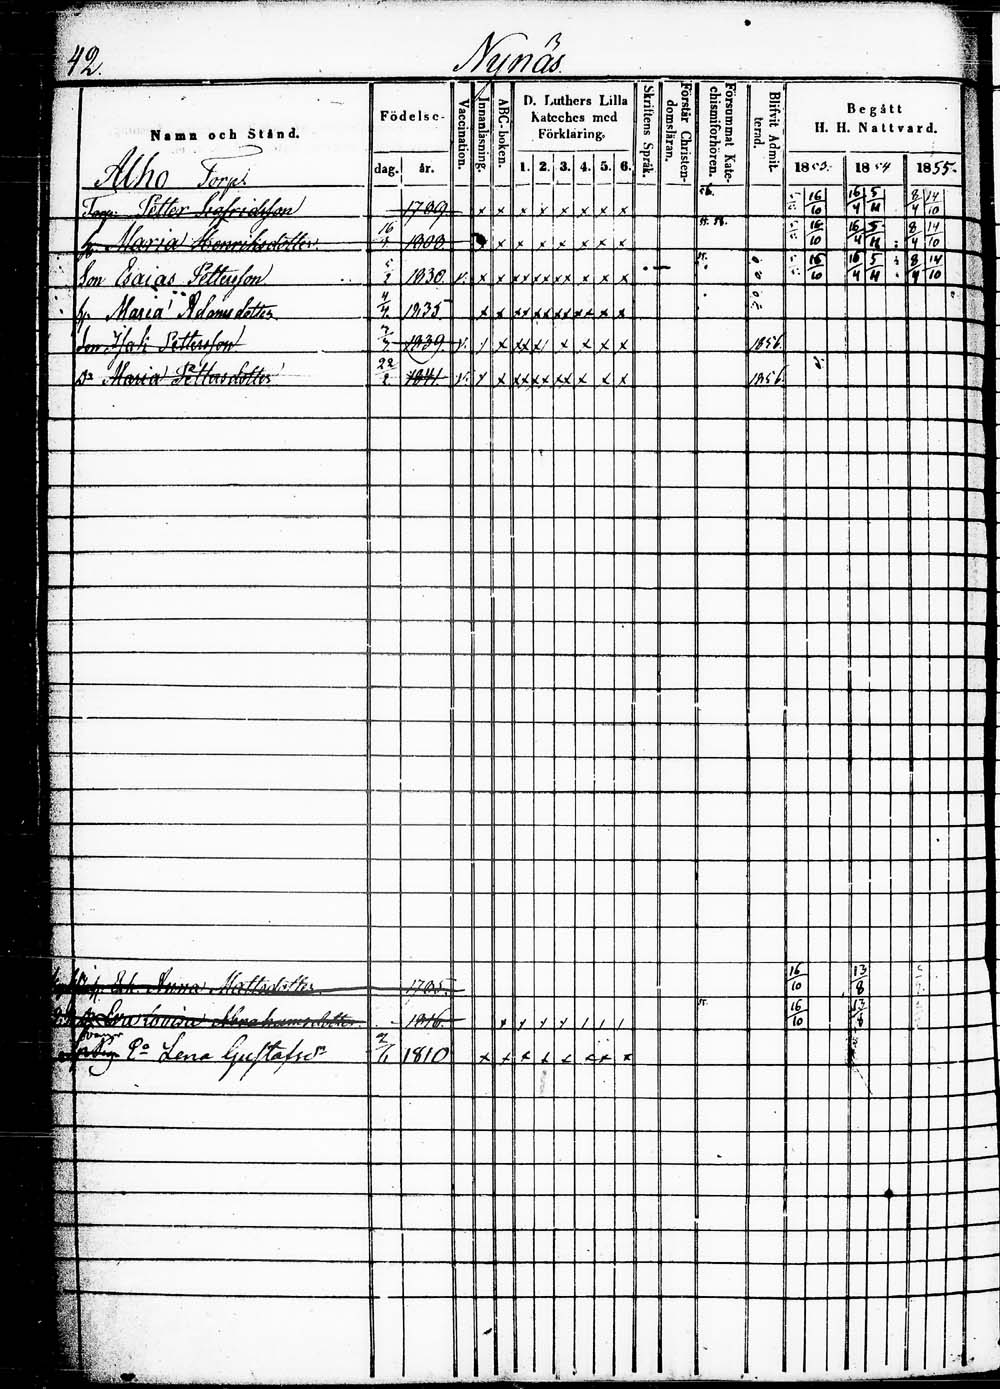 42.
Nynäs.
Namn och Stånd.
Födelse-
dag. år.
Vaccination.
Innanläsning.
ABC-boken.
D. Luthers Lilla
Kateches med
Förklaring.
1. 2. 3. 4. 5. 6.
Skriftens Språk.
Förstår Christen-
domsläran.
Försummat Kate-
chismiförhören.
Blifvit Admit-
terad.
Begått
H. H. Nattvard.
1853. 1854 1855.
Alho Torp.
Torp. Petter Sigfridsson 1789 x x x x x x x x 56. 16/10 16/4 5/11 8/4 14/10
h. Maria Henriksdotter 16/4 1808 x x x x x x x 55. 56. 16/10 16/4 5/11 8/4 14/10
Son Esaias Pettersson 1830 v. x x xx xx xx x x x 55. 16/10 16/4 5/11 8/4 14/10
h. Maria Adamsdotter 4/4 1835 x x xx xx xx xx x x
Son Isak Pettersson 1839 v. x x x x x x 1856.
Do Maria Pettersdotter 22/2 1841 v. x x xx xx xx x x x 1856.
Enk. Anna Mattsdotter 1785. 16/10 13/8
Eva Lovisa Abrahamsdotter 1816. x 55. 16/10 13/8
Pa Lena Gustafsdr 1810 x x x x x x x x